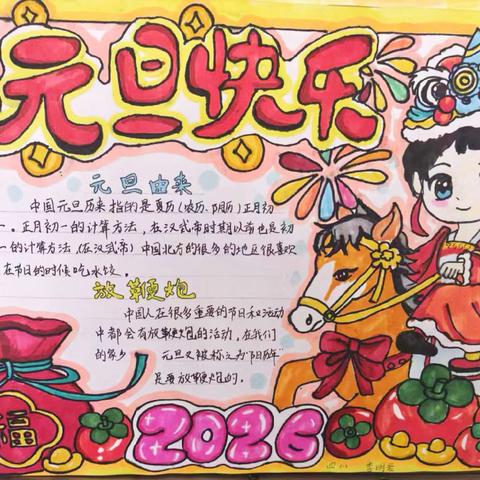 元旦快乐
元旦由来
中国元旦历来指的是夏历(农历、阴历)正月初
一。正月初一的计算方法，在汉武帝时期以前也是初
一的计算方法(在汉武帝)中国北方的很多的地区很喜欢
在节日的时候吃水饺。
放鞭炮
中国人在很多重要的节日和活动
中都会有放鞭炮的活动，在我们
的家乡 元旦又被称之为"阳历年"
是要放鞭炮的。
福
2026
四川